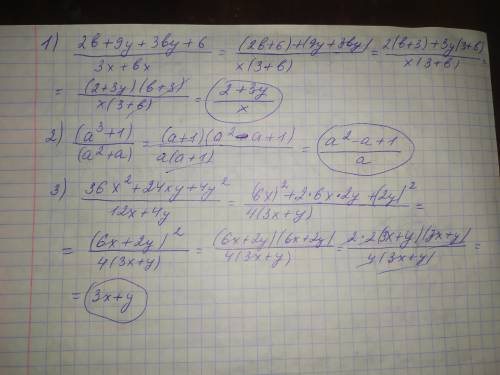 1) (2в+9y+3вy+6)/(3x+вx) = ((2в+6)+(9y+3вy))/(x(3+в)) = (2(в+3)+3y(3+в))/(x(3+в)) =
= ((2+3y)(в+3))/(x(3+в)) = (2+3y)/x
2) (a³+1)/(a²+a) = ((a+1)(a²-a+1))/(a(a+1)) = (a²-a+1)/a
3) (36x²+24xy+4y²)/(12x+4y) = ((6x)²+2·6x·2y+(2y)²)/(4(3x+y)) =
= (6x+2y)²/(4(3x+y)) = ((6x+2y)(6x+2y))/(4(3x+y)) = (2·2(3x+y)(3x+y))/(4(3x+y)) =
= 3x+y